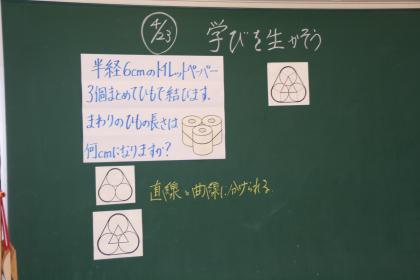 4/23
学びを生かそう
半径6cmのトイレットペーパー
3個まとめてひもで結びます.
まわりのひもの長さは
何cmになりますか?
直線と曲線に分けられる.